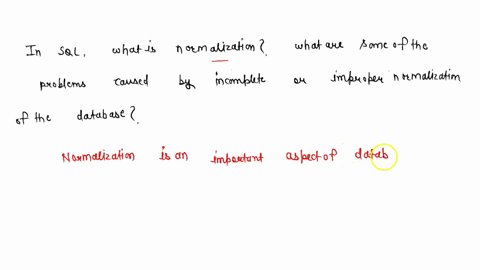 In SQL, what is normalization? what are some of the
problems caused by incomplete or improper normalization
of the database?
Normalization is an important aspect of datab